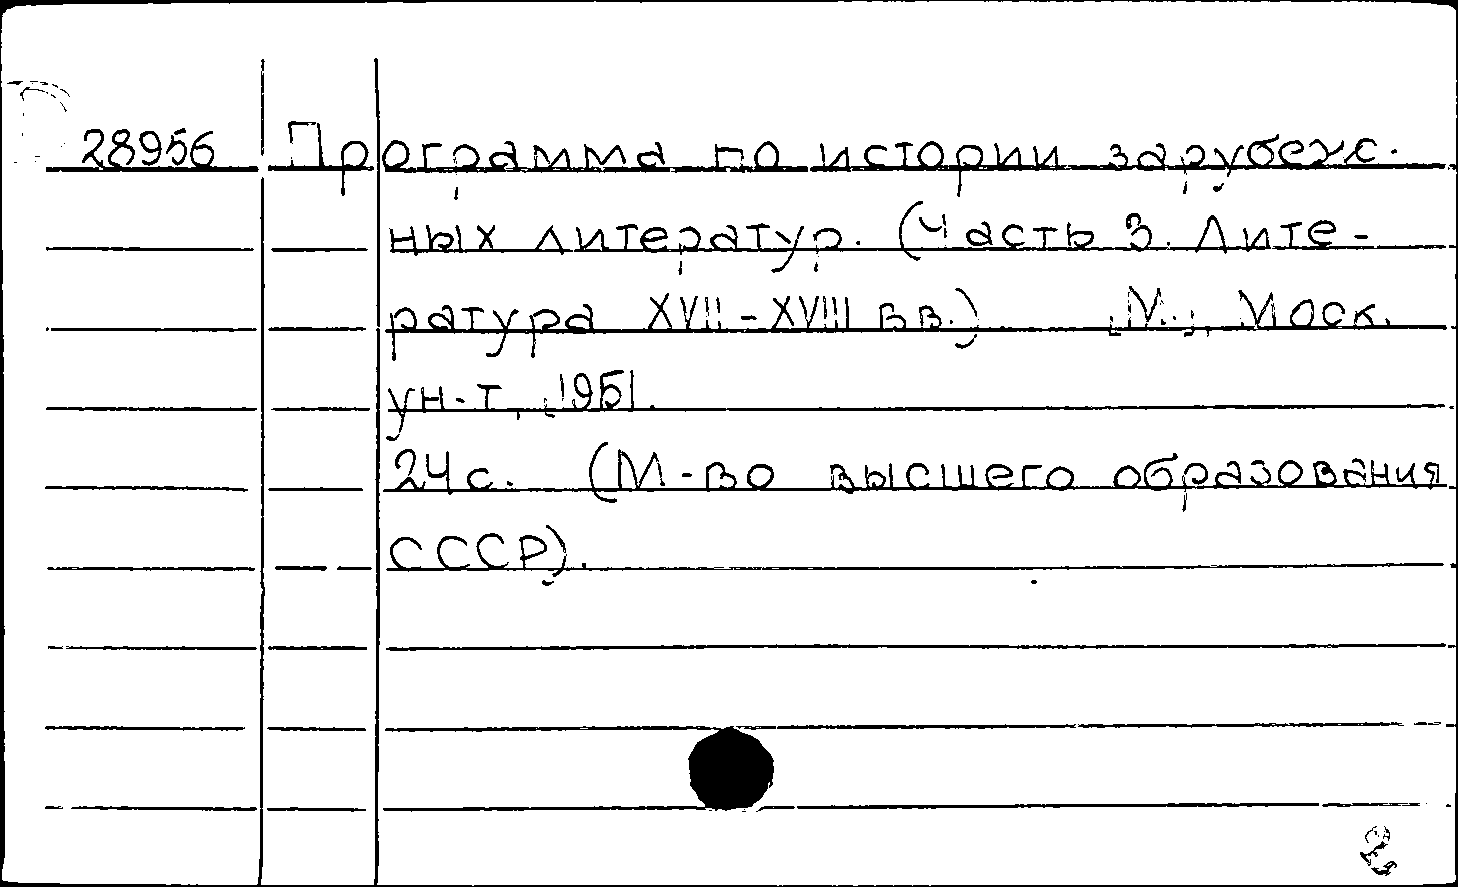 28956 Программа по истории зарубеж-
ных литератур. (Часть 3. Лите-
ратура XVII-XVIII вв.) [М.], Моск.
ун-т, [1951.
24 с. (М-во высшего образования
СССР).